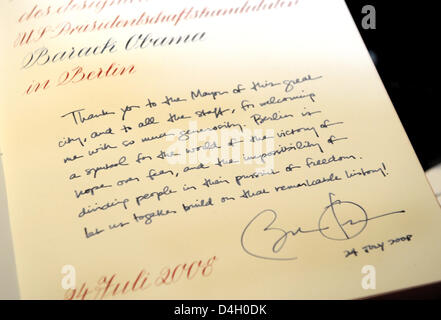 des designierten
US-Präsidentschaftskandidaten
Barack Obama
in Berlin
Thank you to the Mayor of this great
city, and to all the staff, for welcoming
me with so much generosity. Berlin is
a symbol for the world of the victory of
hope over fear, and the impossibility of
dividing people in their pursuit of freedom.
Let us together build on that remarkable history!
24 July 2008
24. Juli 2008
alamy
Image ID: D4H0DK
www.alamy.com